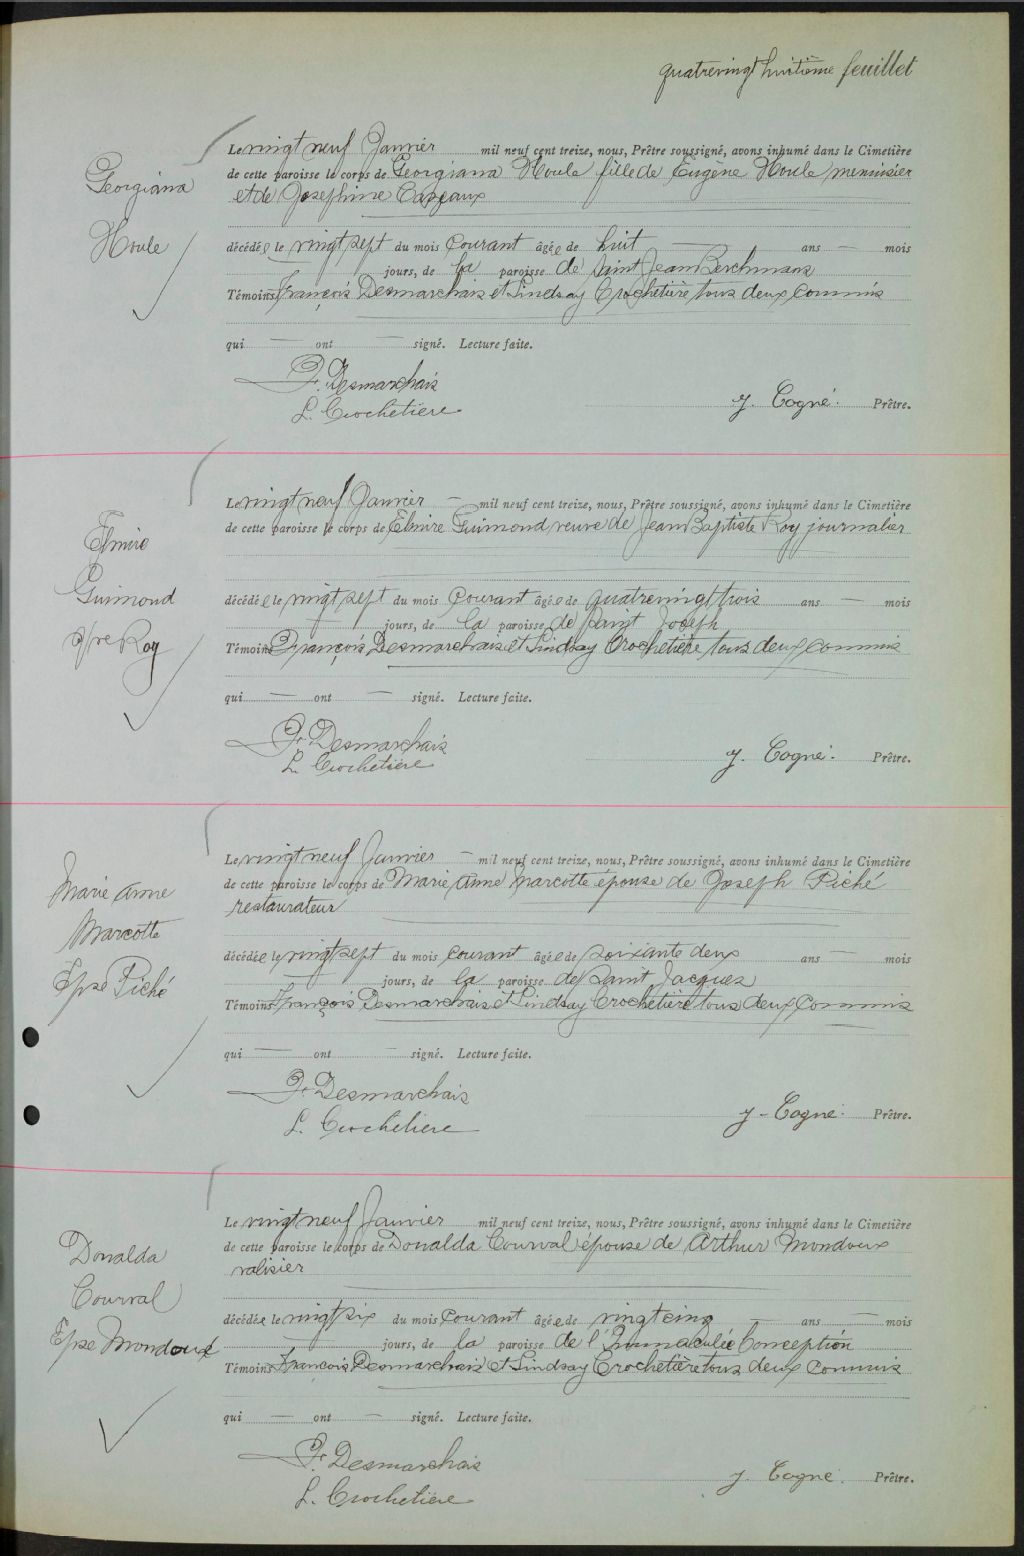 quatrevingt huitième feuillet
Georgiana
Houle
Le vingt neuf Janvier mil neuf cent treize, nous, Prêtre soussigné, avons inhumé dans le Cimetière
de cette paroisse le corps de Georgiana Houle fille de Eugène Houle menuisier
et de Josephine Cazeaux
décédée le vingt sept du mois courant âgée de huit — ans — mois
— jours, de la paroisse de Saint Jean Berchmans
Témoins François Desmarchais et Lindsay Crochetière tous deux commis
qui — ont — signé. Lecture faite.
F. Desmarchais
L. Crochetiere
J. Cogné. Prêtre.
Elmire
Guimond
Vve Roy
Le vingt neuf Janvier — mil neuf cent treize, nous, Prêtre soussigné, avons inhumé dans le Cimetière
de cette paroisse le corps de Elmire Guimond veuve de Jean Baptiste Roy journalier
décédée le vingt sept du mois courant âgée de quatrevingt trois ans — mois
— jours, de la paroisse de Saint Joseph
Témoins François Desmarchais et Lindsay Crochetière tous deux commis
qui — ont — signé. Lecture faite.
F. Desmarchais
L. Crochetiere
J. Cogné. Prêtre.
Marie Anne
Marcotte
Epse Piché
Le vingt neuf Janvier — mil neuf cent treize, nous, Prêtre soussigné, avons inhumé dans le Cimetière
de cette paroisse le corps de Marie Anne Marcotte épouse de Joseph Piché
restaurateur
décédée le vingt sept du mois courant âgée de soixante deux ans — mois
— jours, de la paroisse de Saint Jacques
Témoins François Desmarchais et Lindsay Crochetière tous deux commis
qui — ont — signé. Lecture faite.
F. Desmarchais
L. Crochetiere
J. Cogné. Prêtre.
Donalda
Courval
Epse Mondoux
Le vingt neuf Janvier mil neuf cent treize, nous, Prêtre soussigné, avons inhumé dans le Cimetière
de cette paroisse le corps de Donalda Courval épouse de Arthur Mondoux
valisier
décédée le vingt six du mois courant âgée de vingt cinq ans — mois
— jours, de la paroisse de l'Immaculée Conception
Témoins François Desmarchais et Lindsay Crochetière tous deux commis
qui — ont — signé. Lecture faite.
F. Desmarchais
L. Crochetiere
J. Cogné. Prêtre.